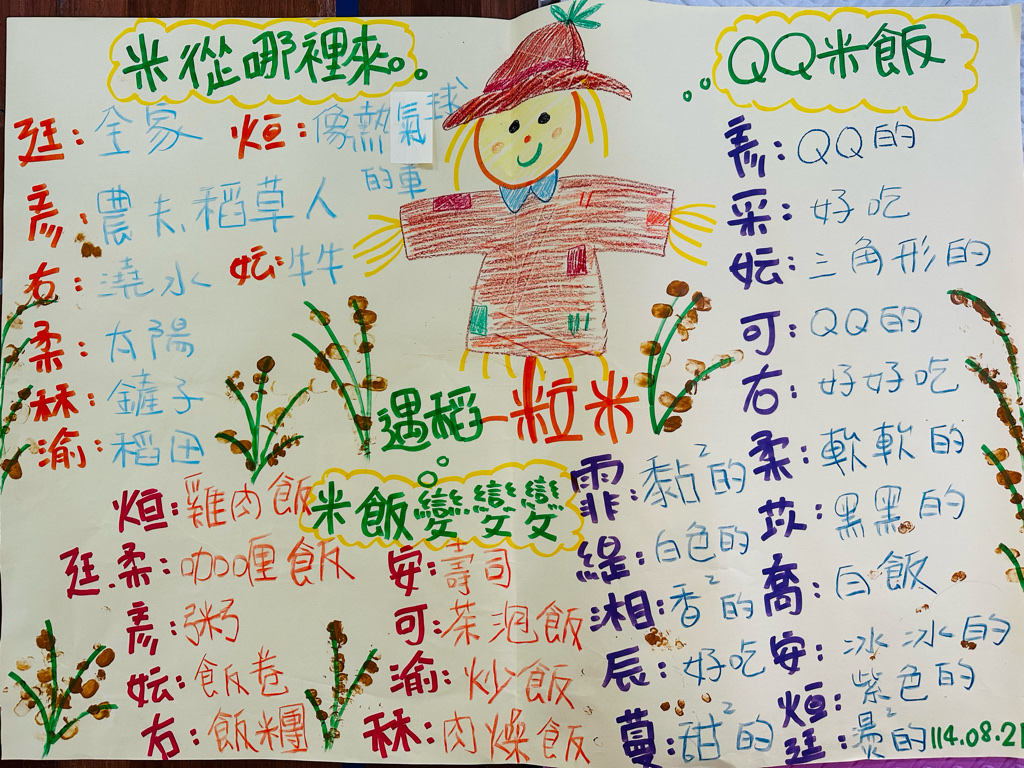 米從哪裡來
廷：全家
烜：像熱氣球的車
彥：農夫、稻草人
右：澆水
妘：牛牛
柔：太陽
秝：鏟子
渝：稻田
遇稻一粒米
QQ米飯
彥：QQ的
采：好吃
妘：三角形的
可：QQ的
右：好好吃
柔：軟軟的
苡：黑黑的
喬：白飯
安：冰冰的
烜：紫色的
廷：燙²的
霏：黏²的
緹：白色的
湘：香²的
辰：好吃
蔓：甜²的
米飯變變變
烜：雞肉飯
廷.柔：咖哩飯
彥：粥
妘：飯卷
右：飯糰
安：壽司
可：茶泡飯
渝：炒飯
秝：肉燥飯
114.08.21